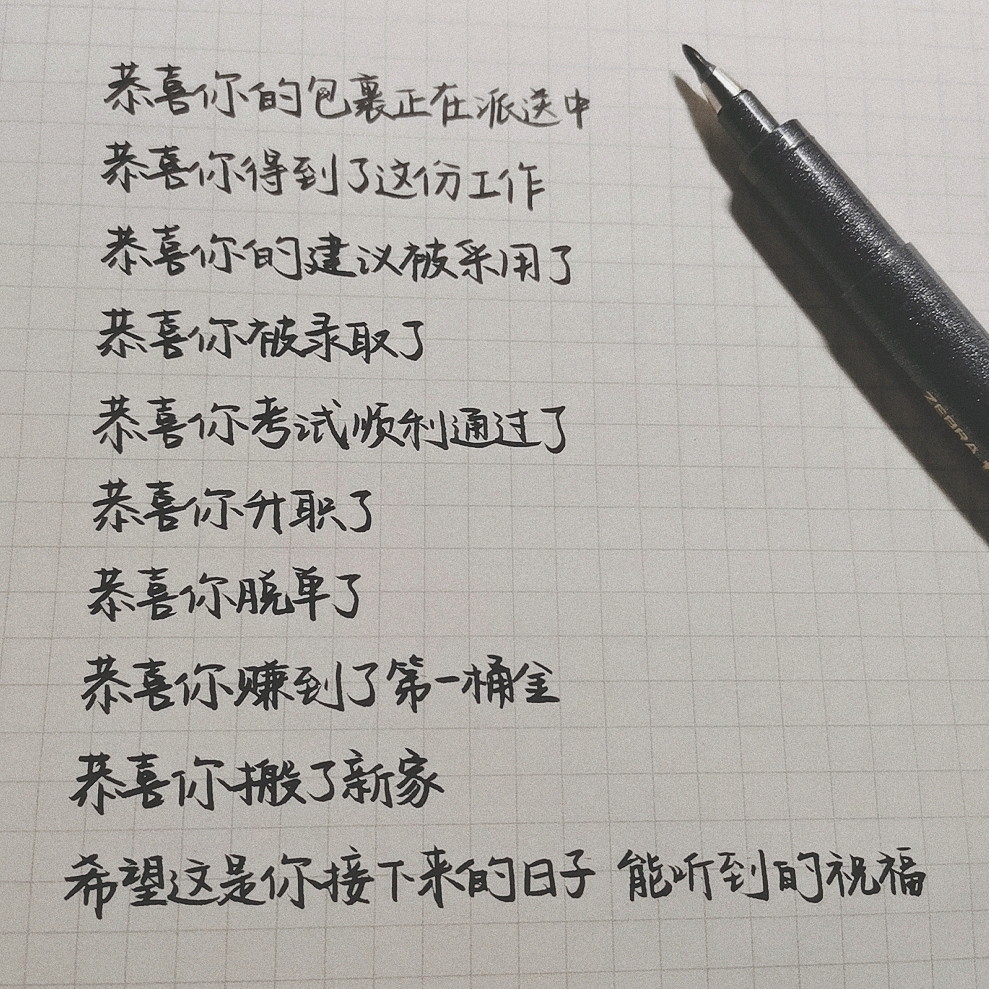 恭喜你的包裹正在派送中
恭喜你得到了这份工作
恭喜你的建议被采用了
恭喜你被录取了
恭喜你考试顺利通过了
恭喜你升职了
恭喜你脱单了
恭喜你赚到了第一桶金
恭喜你搬了新家
希望这是你接下来的日子 能听到的祝福
ZEBRA